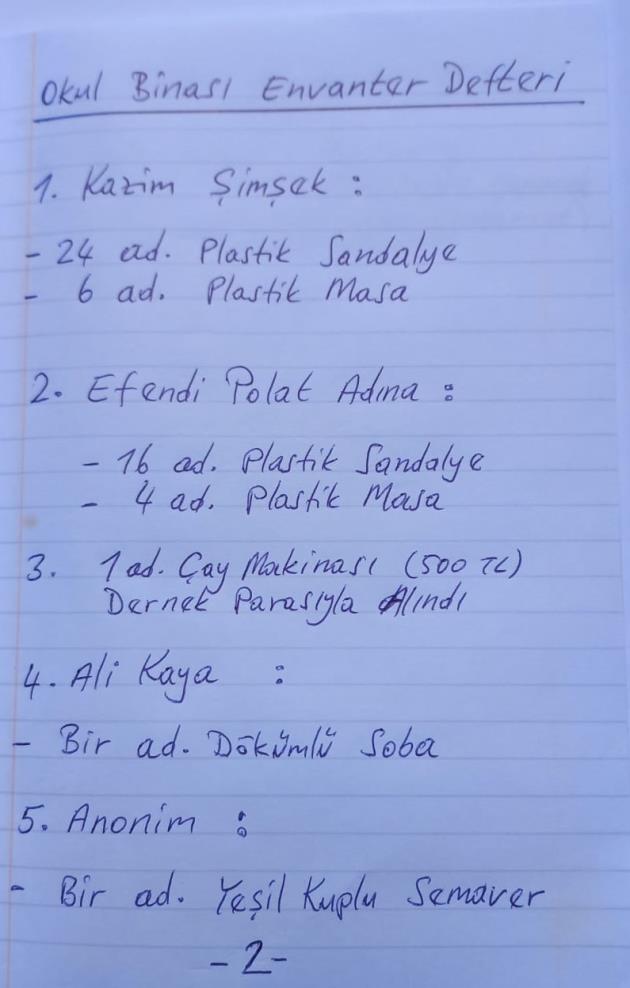 Okul Binası Envanter Defteri
1. Kazim Şimşek :
- 24 ad. Plastik Sandalye
- 6 ad. Plastik Masa
2. Efendi Polat Adına :
- 16 ad. Plastik Sandalye
- 4 ad. Plastik Masa
3. 1 ad. Çay Makinası (500 TL)
Dernek Parasıyla Alındı
4. Ali Kaya :
- Bir ad. Dökümlü Soba
5. Anonim :
- Bir ad. Yeşil Kuplu Semaver
-2-